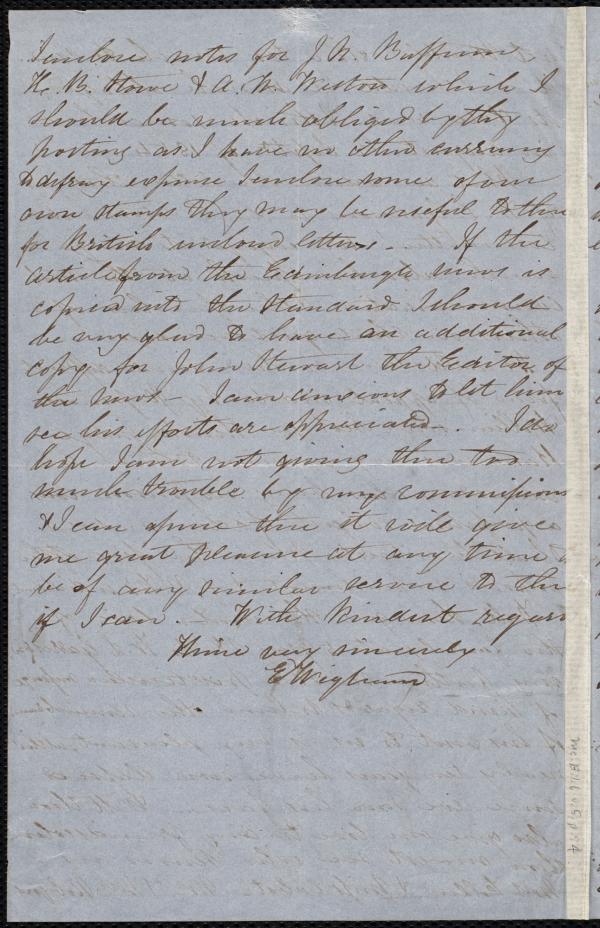 I enclose notes for J. N. Buffum
H. B. Stowe & A. W. Weston which I
should be much obliged by thy
posting as I have no other currency
to defray expense I enclose some of our
own stamps they may be useful to thee
for British inclosed letters. - If the
article from the Edinburgh news is
copied into the Standard I should
be very glad to have an additional
copy for John Stewart the Editor of
the News - I am anxious to let him
see his efforts are appreciated -. I do
hope I am not giving thee too
much trouble by my commissions
& I can assure thee it will give
me great pleasure at any time
be of any similar service to thee
if I can. With kindest regar
Thine very sincerely
E Wigham